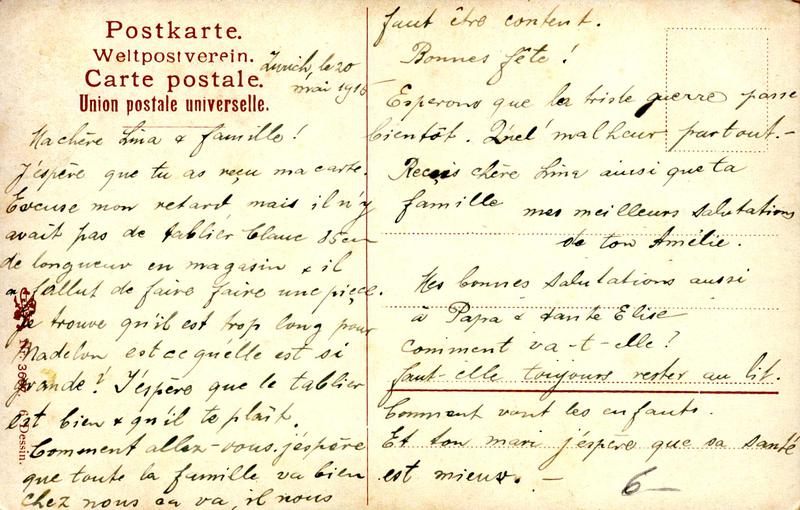 Postkarte.
Weltpostverein.
Carte postale.
Union postale universelle.
Zurich, le 20
mai 1915
Machère Lina & famille!
J'éspère que tu as reçu ma carte.
Excuse mon retard mais il n'y
avait pas de tablier blanc 85 cm
de longueur en magasin & il
a fallut de faire faire une pièce.
Je trouve qu'il est trop long pour
Madelon est ce qu'elle est si
grande! J'éspère que le tablier
est bien & qu'il te plaît.
Comment allez-vous. j'éspère
que toute la famille va bien
chez nous ca va, il nous
faut être content.
Bonnes fête!
Esperons que la triste guerre passe
bientôt. Quel' malheur partout.-
Reçois chère Lina ainsi que ta
famille mes meilleurs salutations
de ton Amélie.
Mes bonnes salutations aussi
à Papa & tante Elise
comment va-t-elle?
faut-elle toujours rester au lit.
Comment vont les enfants.
Et ton mari j'éspère que sa santé
est mieux. -
6-
Dessin.